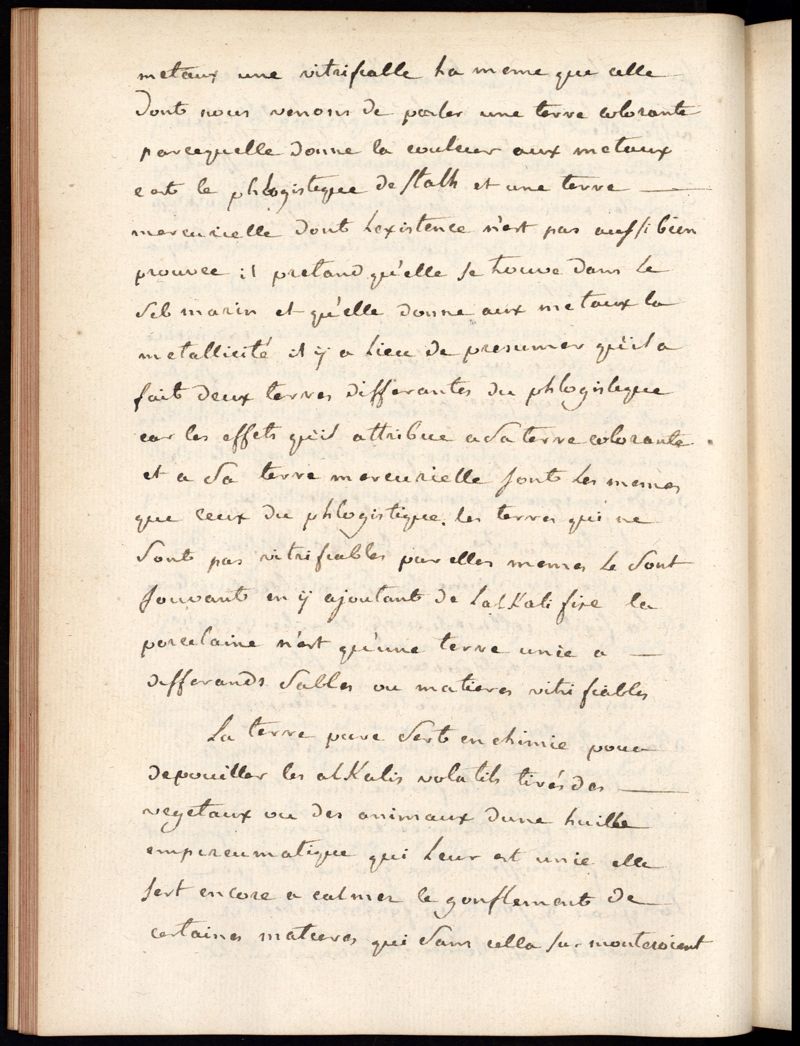 metaux une vitrifiable La meme que celle
dont nous venons de parler une terre colorante
parcequelle donne la couleur aux metaux
cest le phlogistique de Stalh et une terre —
mercurielle dont Lexistence n'est pas aussi bien
prouvee il pretand qu'elle se trouve dans Le
Sel marin et qu'elle donne aux metaux la
metallicité il ÿ a Lieu de presumer qu'il a
fait deux terres differantes du phlogistique
car les effets qu'il attribue a Sa terre colorante
et a Sa terre mercurielle sont Les memes
que ceux du phlogistique. les terres qui ne
Sont pas vitrifiables par elles memes Le Sont
souvant en ÿ ajoutant de LalKali fixe la
porcelaine n'est qu'une terre unie a —
differands Sables ou matieres vitrifiables
La terre pure Sert en chimie pour
depouiller les alKalis volatils tirés des —
vegetaux ou des animaux dune huille
empireumatique qui Leur est unie elle
sert encore a calmer le gonflement de
certaines matieres qui Sans cella surmonteroient